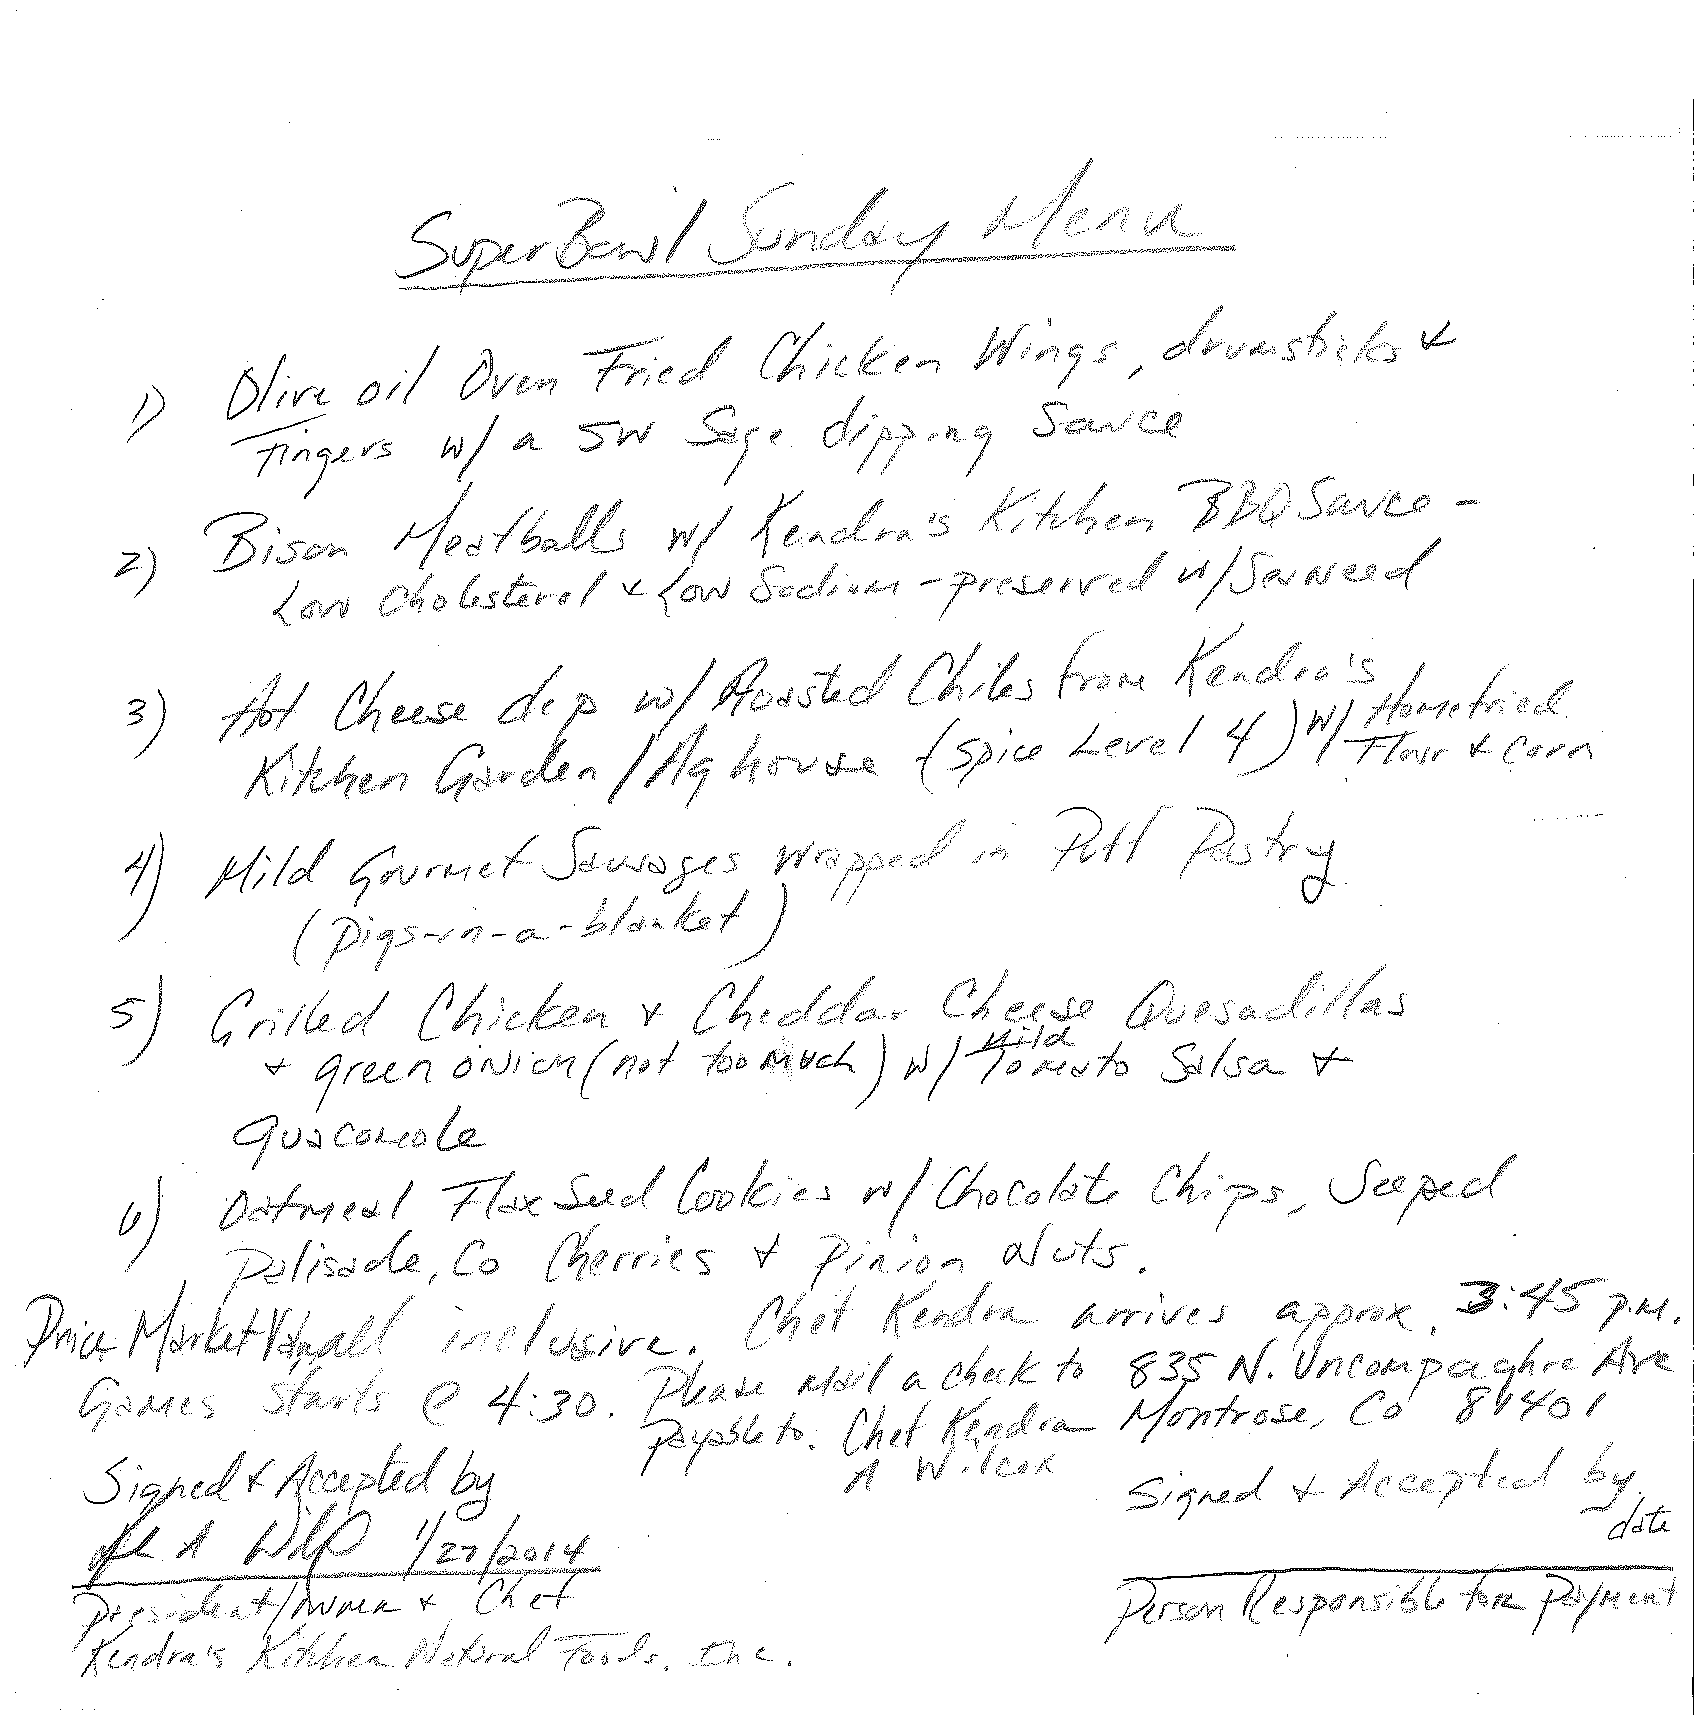 SuperBowl Sunday Menu
1) Olive oil Oven Fried Chicken Wings, drumsticks +
Fingers w/ a SW Sage dipping Sauce
2) Bison Meatballs w/ Kendra's Kitchen BBQ Sauce -
Low Cholesterol + Low Sodium - preserved w/ Seaweed
3) Hot Cheese dip w/ Roasted Chiles from Kendra's
Kitchen Garden / Ag house (Spice Level 4) w/ Homefried
Flour + Corn
4) Mild Gourmet Sausages wrapped in Puff Pastry
(Pigs-in-a-blanket)
5) Grilled Chicken + Cheddar Cheese Quesadillas
+ green onion (not too much) w/ Mild Tomato Salsa +
guacomole
6) Oatmeal Flax Seed Cookies w/ Chocolate Chips, Seeped
Palisade, Co Cherries + Pinion Nuts.
Price Market all inclusive. Chef Kendra arrives approx. 3:45 p.m.
Games starts @ 4:30. Please mail a check to 835 N. Uncompaghre Ave
payable to: Chef Kendra Montrose, Co 81401
A Wilcox
Signed + Accepted by
A 1/27/2014
President/owner + Chef
Kendra's Kitchen Natural Foods, Inc.
Signed + Accepted by
date
Person Responsible for Payment